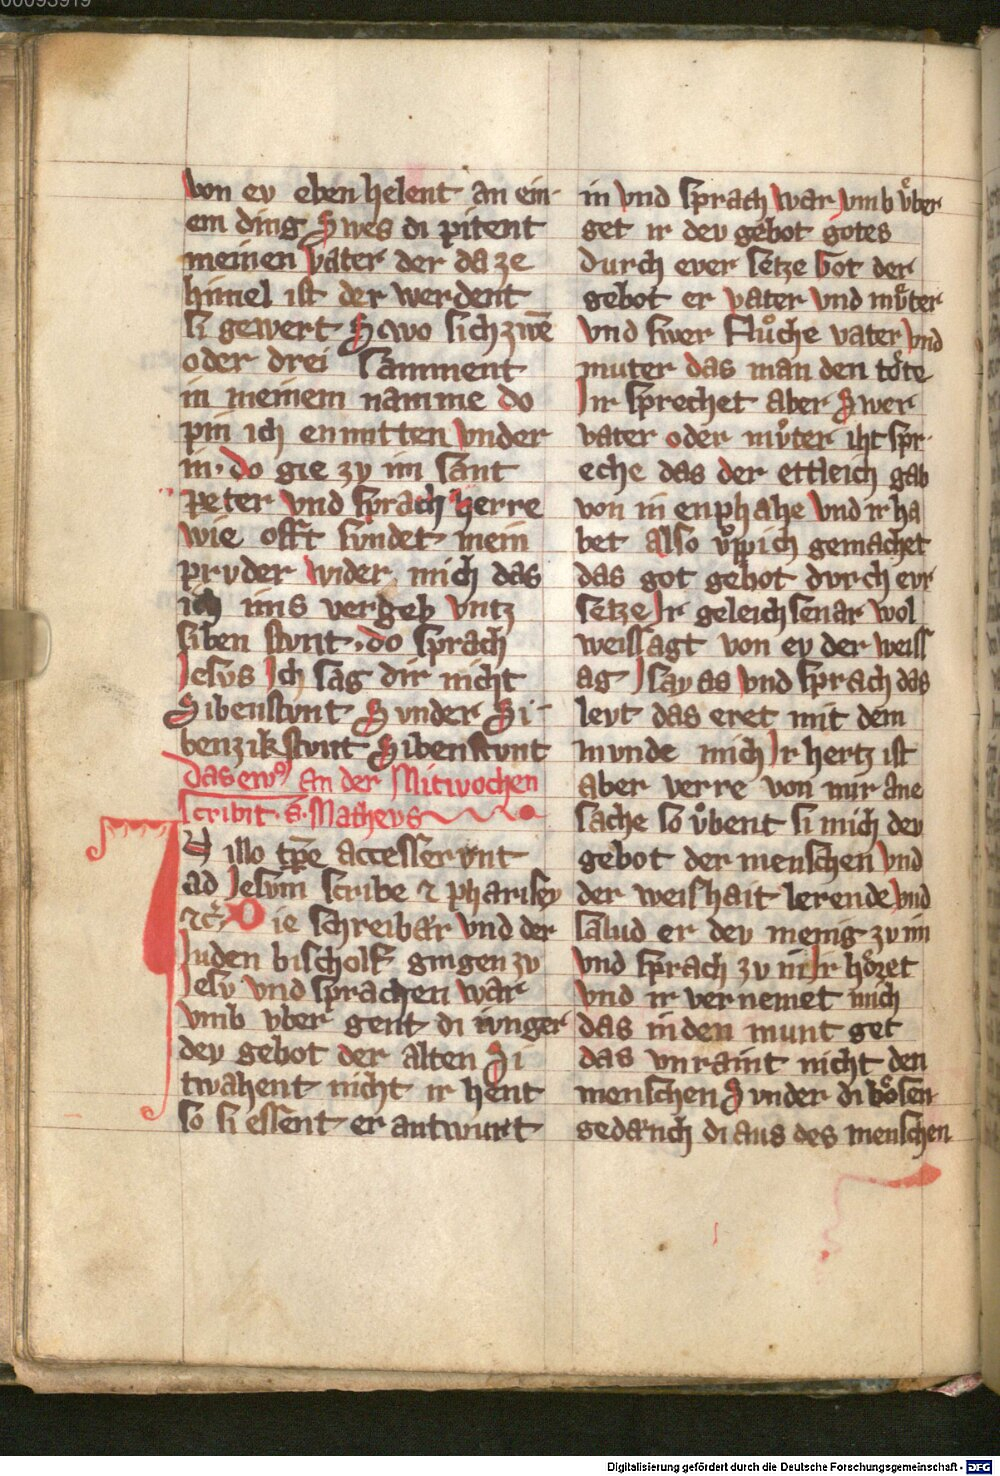 00093919
von ev eben helent an ein-
em ding Swes di pitent
meinen vater der da ze
himel ist der werdent
si gewert Swo sich zwē
oder drei samment
in meinem namme do
pin ich enmitten vnder
in. do gie zv im sant
peter vnd sprach herre
wie offt svndet mein
prvder wider mich das
ich ims vergeb vntz
siben stvnt. do sprach
Jesvs Jch sag dir nicht
Sibenstvnt Svnder Si-
benzikstvnt Sibenstvnt
Das ew᷒ an der Mitwochen
scribit. s. Mathevs
JN illo tp̄e accesservnt
ad Jesvm scribe ⁊ pharisey
⁊cͣ. Die schreibär vnd der
Juden bischolf gingen zv
Jesv vnd sprachen war
vmb vber gent di ivnger
dev gebot der alten Si
twahent nicht ir hent
so si essent er antwurt
in vnd sprach war vmb vͤber
get ir dev gebot gotes
durch ever setze Got der
gebot er vater vnd mvͤter
vnd swer flůche vater vnd
muter das man den töte
Jr sprechet aber Swer
vater oder mvͦter iht spr-
eche das der ettleich gab
von in enphahe vnd ir ha
bet also vͤppich gemachet
das got gebot dvrch evr
setze Jr geleichsenar wol
weissagt von ev der weiss
ag Jsayas vnd sprach das
levt das eret mit dem
mvnde mich Jr hertz ist
aber verre von mir ane
sache so vͦbent si mich dev
gebot der menschen vnd
der weishait lerende vnd
salud er dev menig zv im
vnd sprach zv in Jr hözet
vnd ir vernemet mich
das in den munt get
das vnraint nicht den
menschen Svnder di bösen
gedänch di aus des menschen
Digitalisierung gefördert durch die Deutsche Forschungsgemeinschaft - DFG